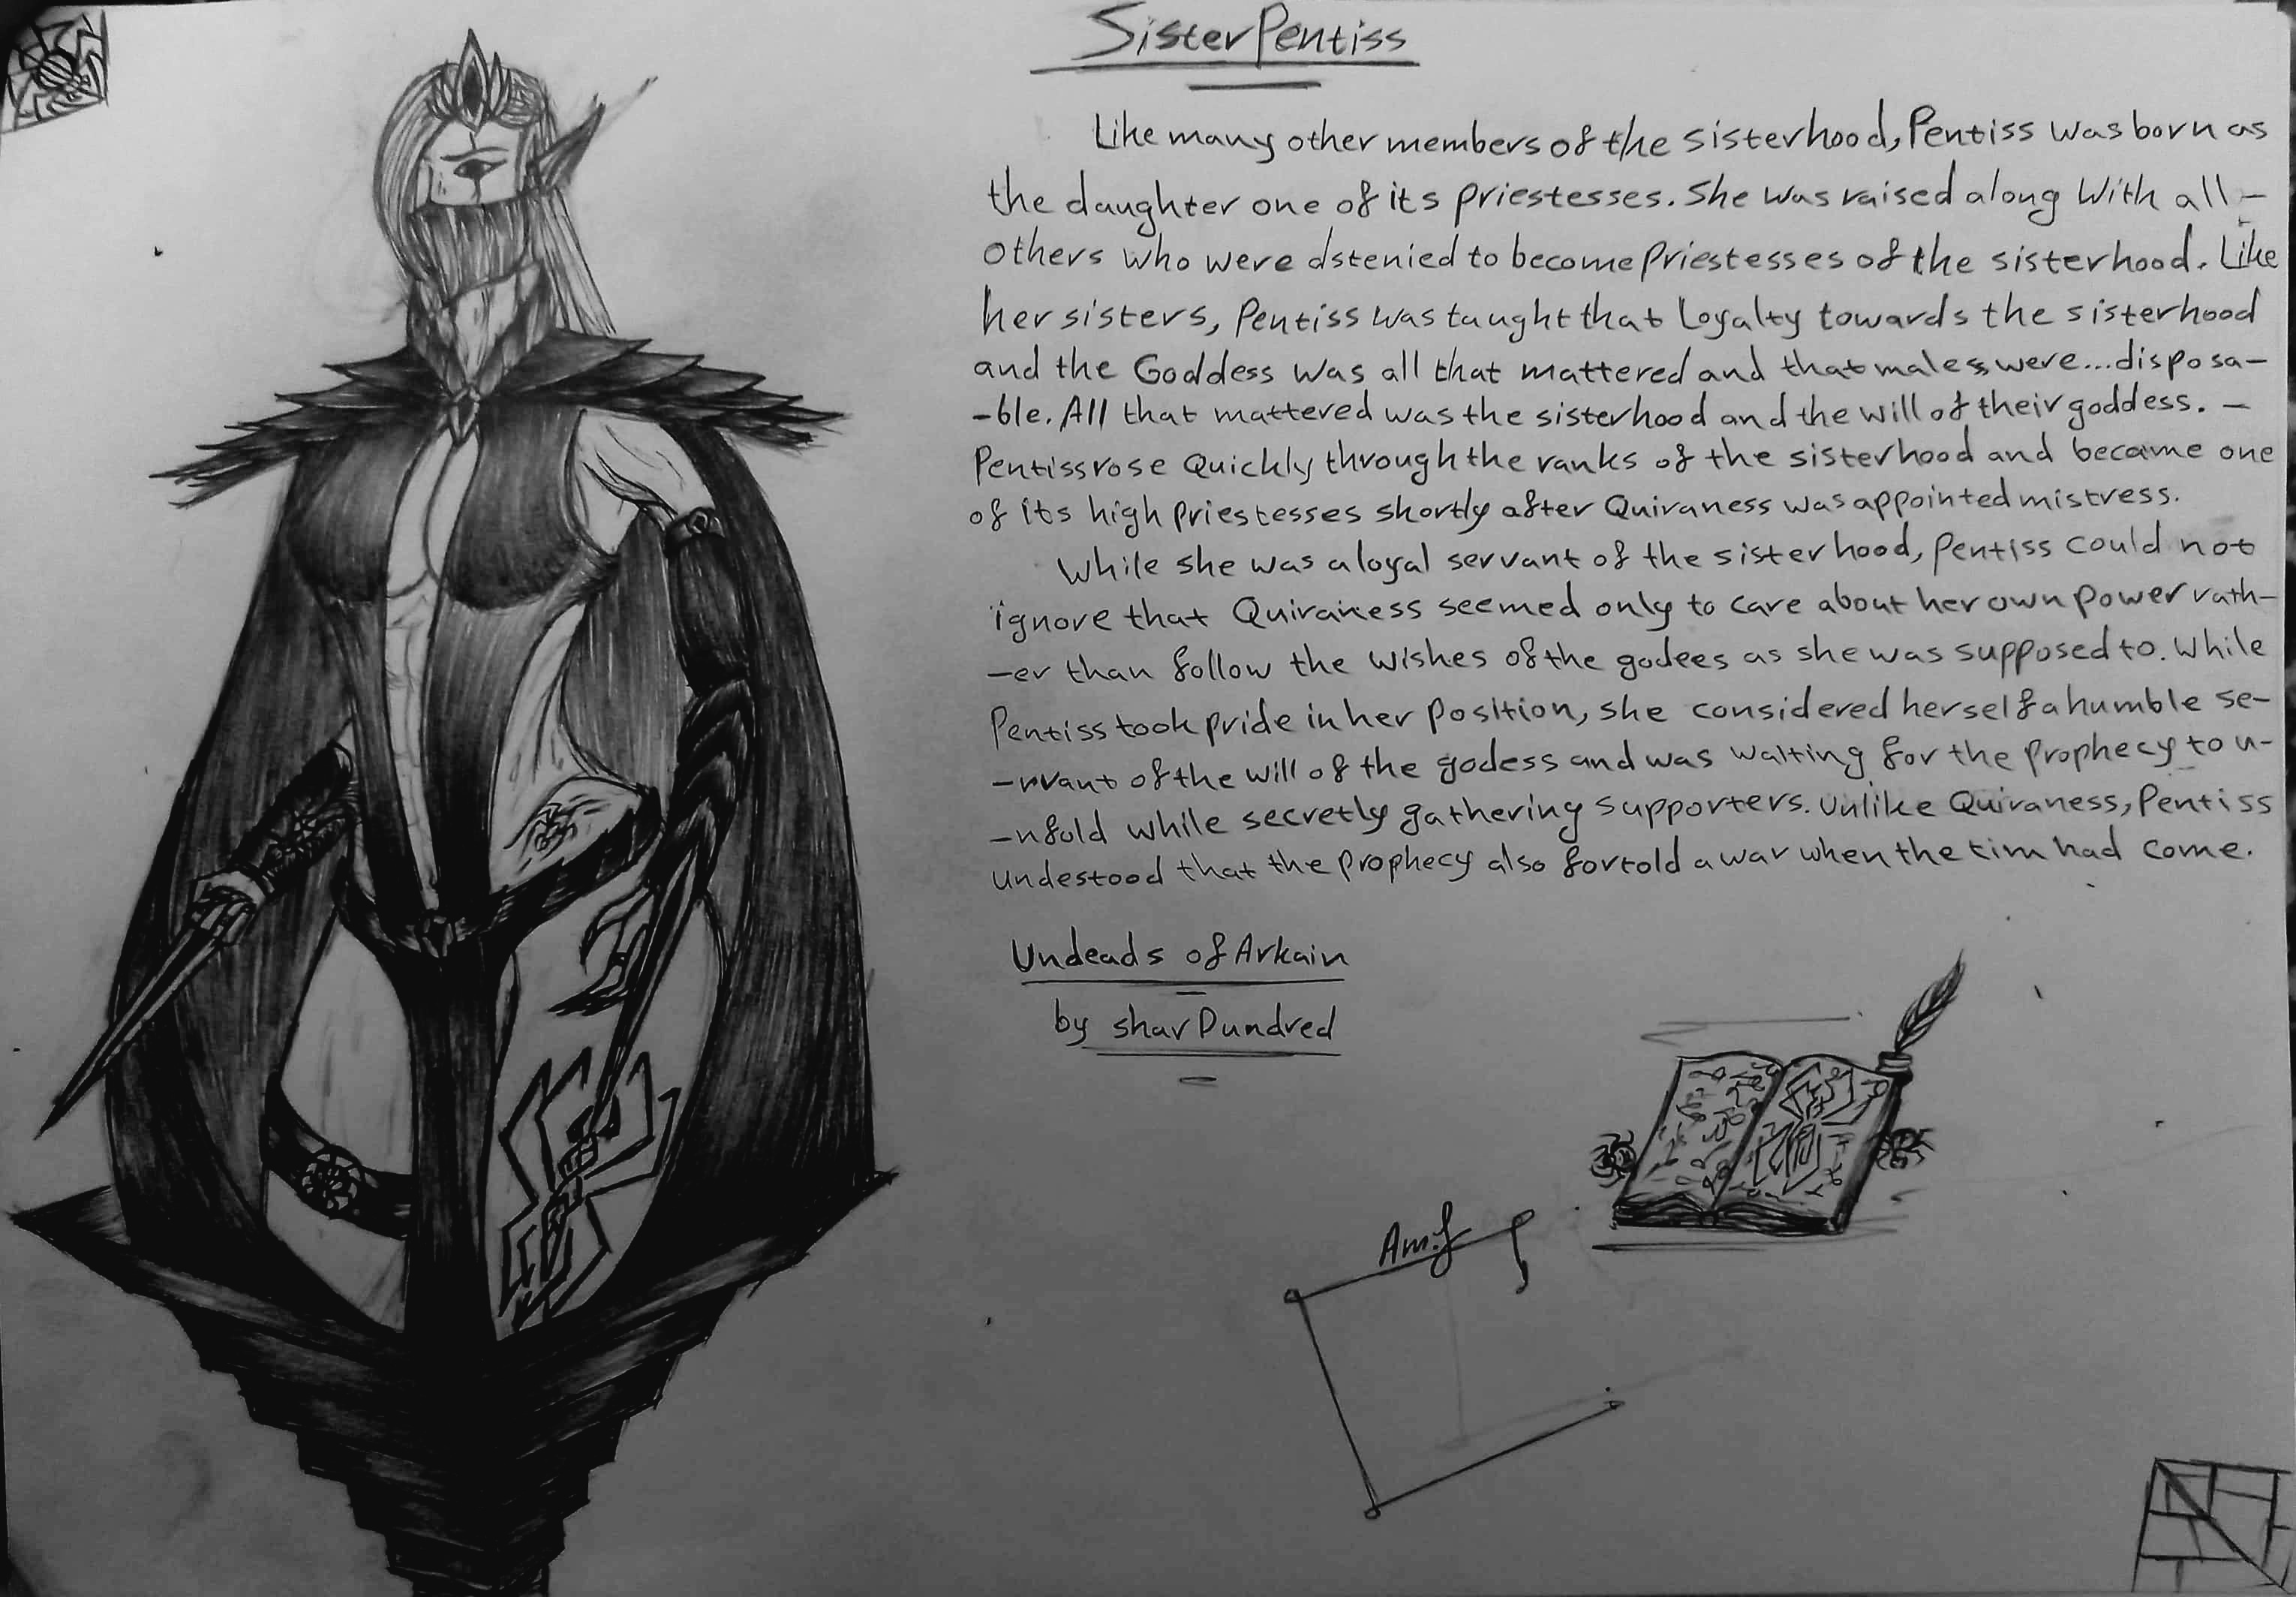 Sister Pentiss
Like many other members of the sisterhood, Pentiss was born as
the daughter one of its priestesses. She was raised along with all -
others who were dstenied to become priestesses of the sisterhood. Like
her sisters, Pentiss was taught that Loyalty towards the sisterhood
and the Goddess was all that mattered and that males were...disposa-
-ble. All that mattered was the sisterhood and the will of their goddess. -
Pentiss rose Quickly through the ranks of the sisterhood and became one
of its high priestesses shortly after Quiraness was appointed mistress.
While she was a loyal servant of the sisterhood, Pentiss could not
ignore that Quiraness seemed only to care about her own power rath-
-er than follow the wishes of the godees as she was supposed to. While
Pentiss took pride in her position, she considered herself a humble se-
-rvant of the will of the godess and was waiting for the prophecy to u-
-nfold while secretly gathering supporters. Unlike Quiraness, Pentiss
undestood that the prophecy also fortold a war when the tim had come.
Undeads of Arkain
by shar Dundred
Am.f